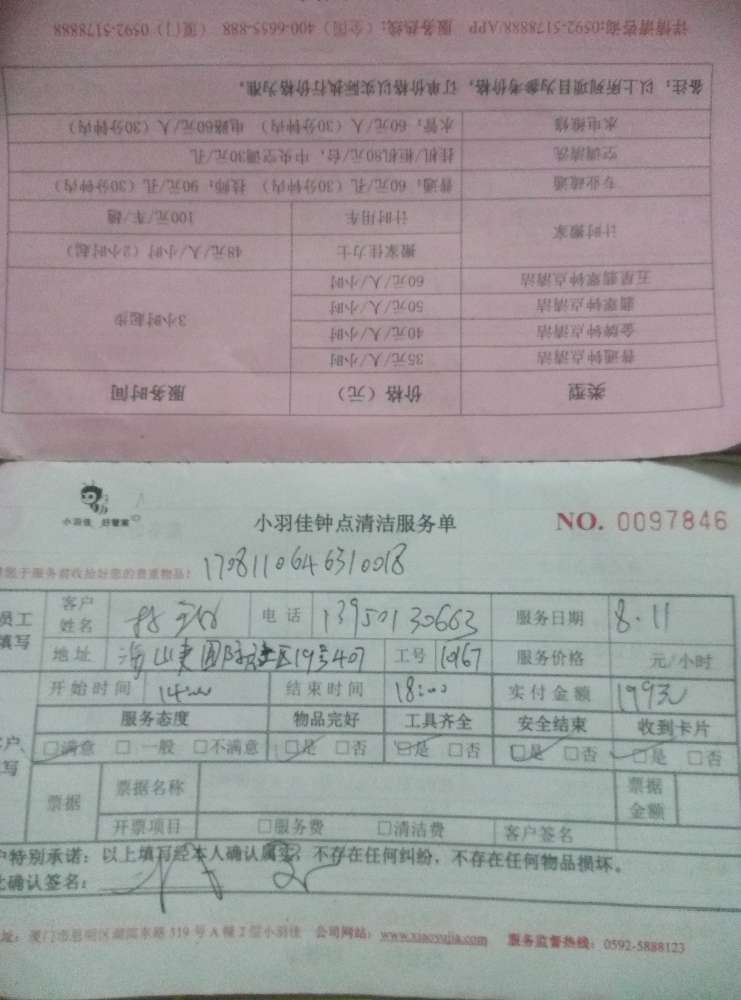 详情请咨询:0592-5178888/APP 服务热线:（全国）400-6655-888 （厦门）0592-5178888
备注：以上所列项目为参考价格，订单价格以实际执行价格为准。
水电维修 水管：60元/人（30分钟内） 电路60元/人（30分钟内）
空调清洗 挂机/柜机80元/台，中央空调30元/孔
专业疏通 普通：60元/孔（30分钟内） 技师：90元/孔（30分钟内）
计时搬家 计时用车 100元/车/趟
搬家佳力士 48元/人/小时（2小时起）
五星翡翠钟点清洁 60元/人/小时
翡翠钟点清洁 50元/人/小时 3小时起步
金牌钟点清洁 40元/人/小时
普通钟点清洁 35元/人/小时
类型 价格（元） 服务时间
小羽佳 好管家
小羽佳钟点清洁服务单 NO. 0097846
您于服务前收拾好您的贵重物品! 1708110646310018
员工填写 客户姓名 电话 13950130663 服务日期 8.11
地址 海山东国际社区19号407 工号 1067 服务价格 元/小时
开始时间 14:00 结束时间 18:00 实付金额 199元
服务态度 物品完好 工具齐全 安全结束 收到卡片
□满意 □一般 □不满意 □是 □否 □是 □否 □是 □否 □是 □否
票据 票据名称 票据金额
开票项目 □服务费 □清洁费 客户签名
户特别承诺：以上填写经本人确认属实，不存在任何纠纷，不存在任何物品损坏。
此确认签名：
址：厦门市思明区湖滨东路319号A幢2层小羽佳 公司网站：www.xiaoyujia.com 服务监督热线：0592-5888123